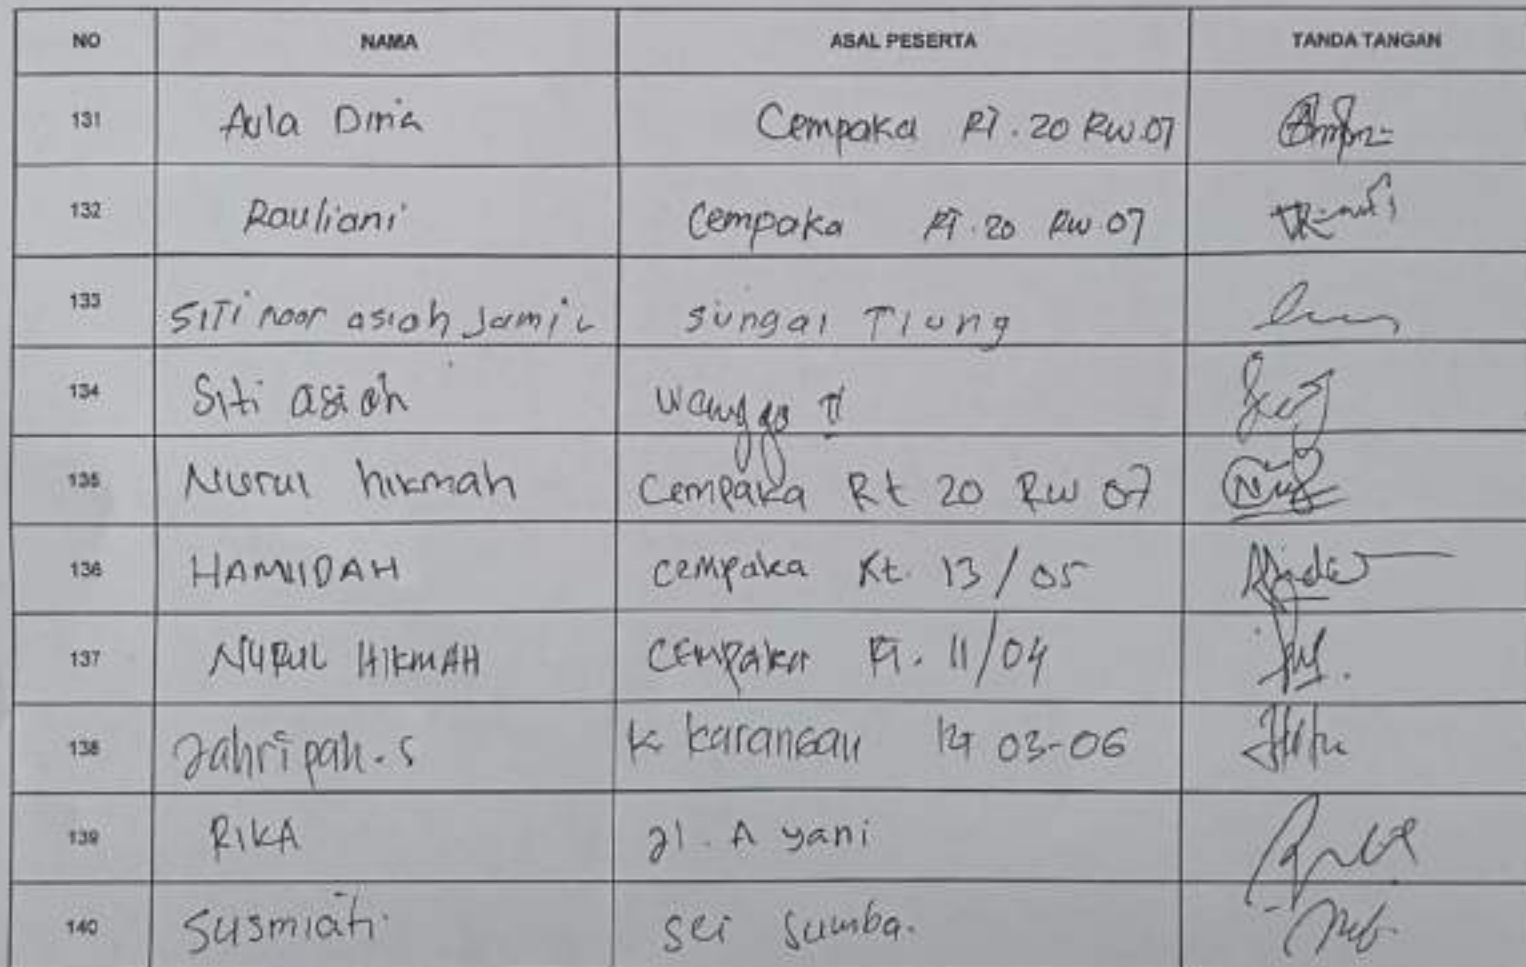 NO NAMA ASAL PESERTA TANDA TANGAN
131 Aula Dina Cempaka RT.20 RW.07
132 Rauliani Cempaka RT.20 RW.07
133 SITi noor asiah Jamil sungai Tiung
134 Siti asiah II
135 Nurul hikmah Cempaka Rt 20 RW 07
136 HAMIDAH cempaka Rt. 13/05
137 NURUL HIKMAH CEMPAKA RT. 11/04
138 Jahripah.s K karangan RT 03-06
139 RIKA Jl. A yani
140 Susmiati sei Sumba.